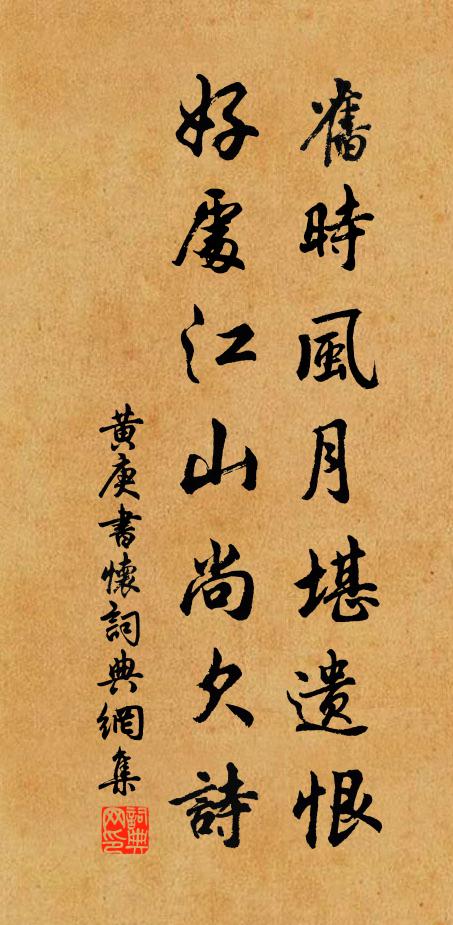 舊時風月堪遺恨
好處江山尚欠詩
黄庚書懷詞典網集
詞典网印